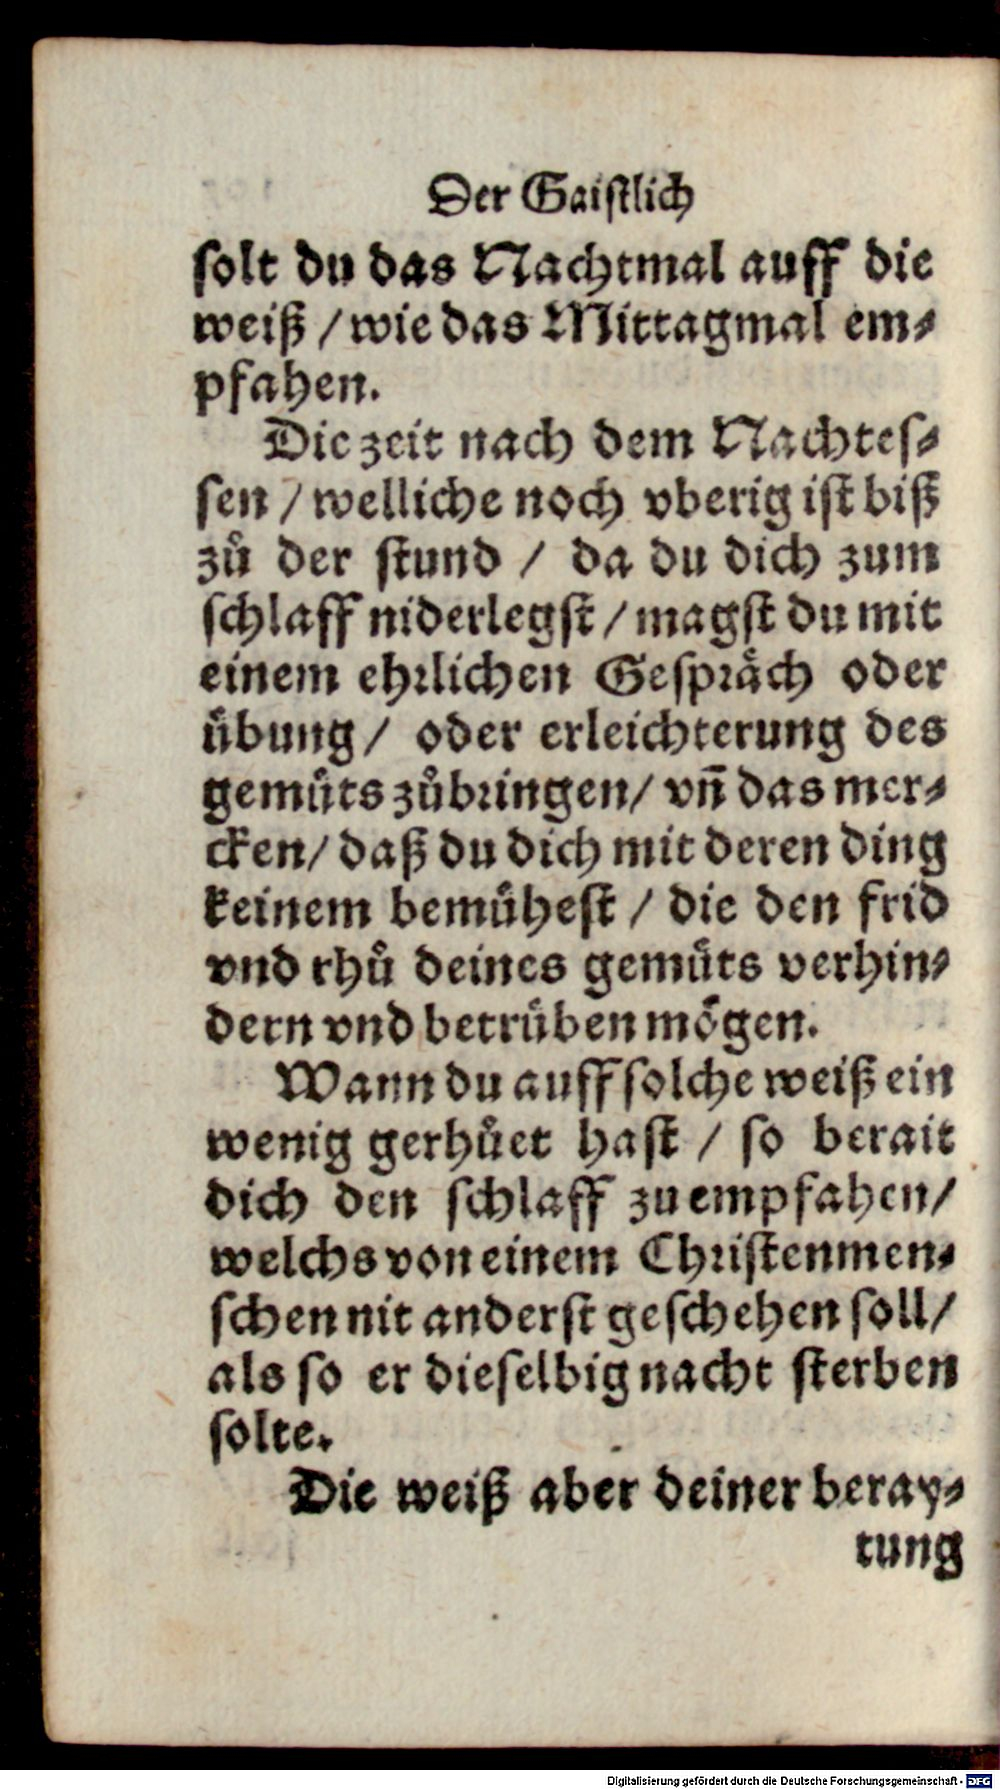 Der Gaistlich
solt du das Nachtmal auff die
weiß / wie das Mittagmal em⸗
pfahen.
Die zeit nach dem Nachtes⸗
sen / welliche noch vberig ist biß
zuͦ der stund / da du dich zum
schlaff niderlegst / magst du mit
einem ehrlichen Gespraͤch oder
uͤbung / oder erleichterung des
gemuͤts zuͦbringen / vñ das mer⸗
cken / daß du dich mit deren ding
keinem bemuͤhest / die den frid
vnd rhuͦ deines gemuͤts verhin⸗
dern vnd betruͤben moͤgen.
Wann du auff solche weiß ein
wenig gerhuͤet hast / so berait
dich den schlaff zu empfahen /
welchs von einem Christenmen⸗
schen nit anderst geschehen soll /
als so er dieselbig nacht sterben
solte.
Die weiß aber deiner beray⸗
tung
Digitalisierung gefördert durch die Deutsche Forschungsgemeinschaft - DFG